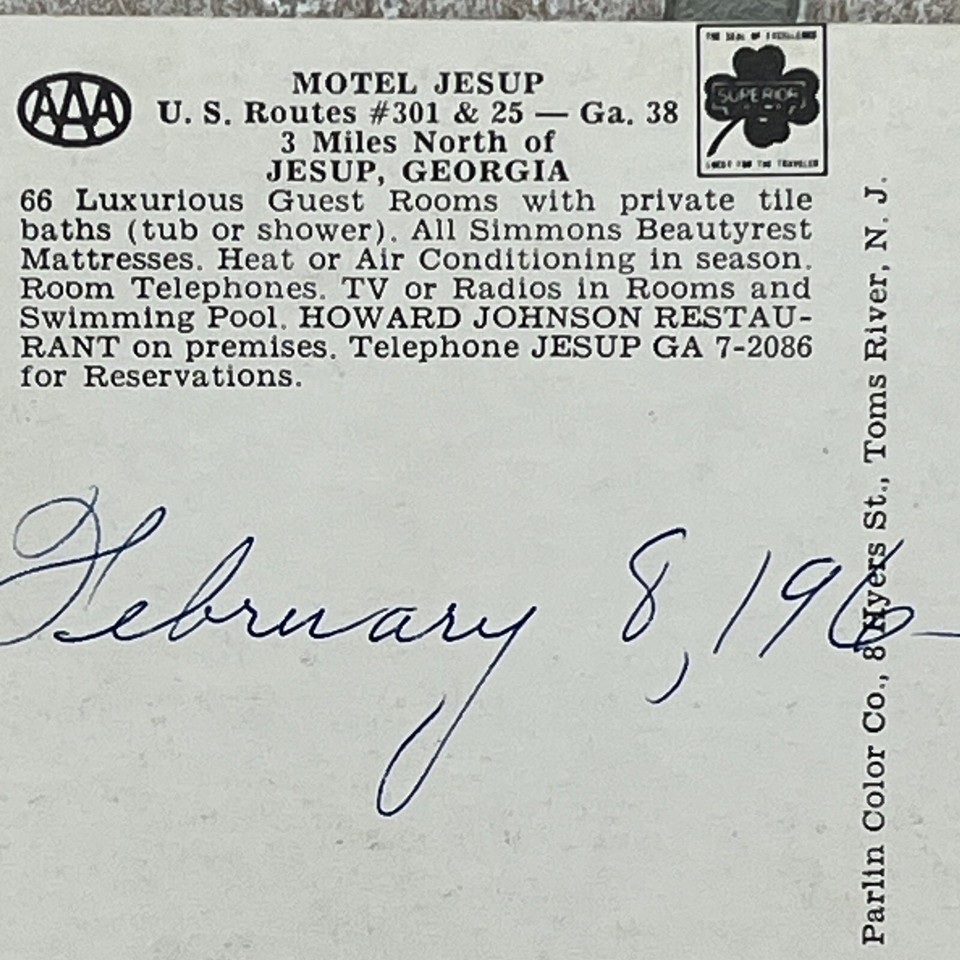 AAA
MOTEL JESUP
U. S. Routes #301 & 25 — Ga. 38
3 Miles North of
JESUP, GEORGIA
THE SEAL OF EXCELLENCE
SUPERIOR
GUEST FOR THE TRAVELER
66 Luxurious Guest Rooms with private tile
baths (tub or shower). All Simmons Beautyrest
Mattresses. Heat or Air Conditioning in season.
Room Telephones. TV or Radios in Rooms and
Swimming Pool. HOWARD JOHNSON RESTAU-
RANT on premises. Telephone JESUP GA 7-2086
for Reservations.
February 8, 196
Parlin Color Co., 8 Hyers St., Toms River, N. J.